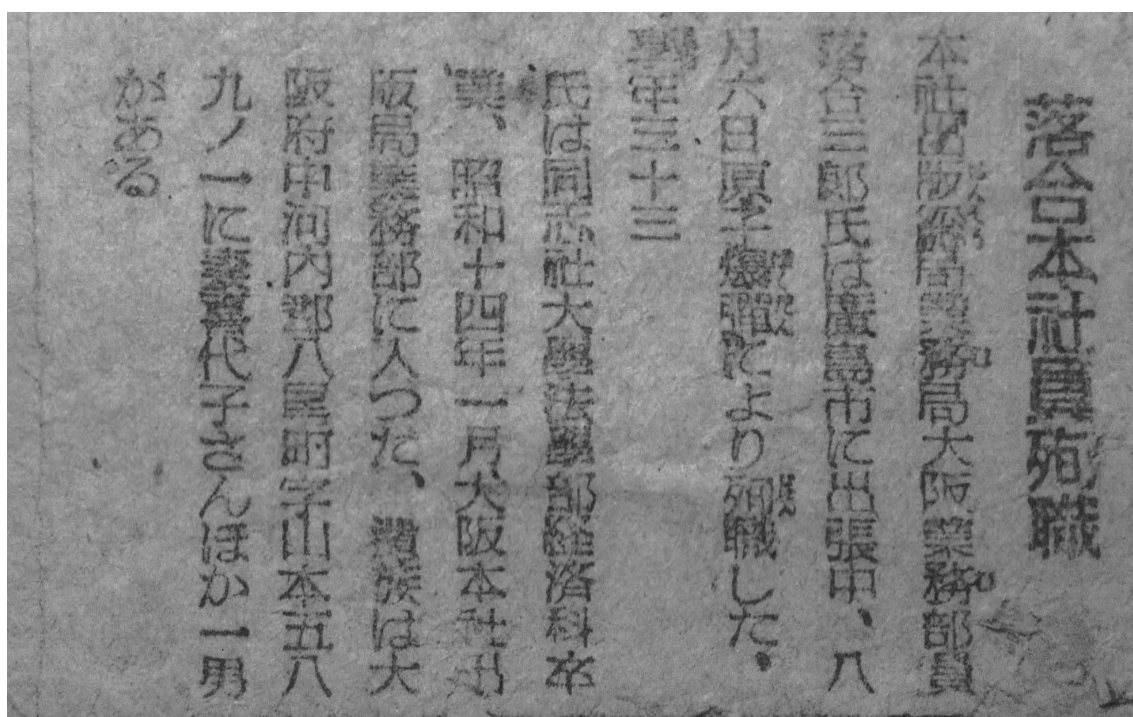 落合本社員殉職
本社出版総局業務局大阪業務部員
落合三郎氏は廣島市に出張中、八
月六日原子爆彈により殉職した、
享年三十三
氏は同志社大學法學部経済科卒
業、昭和十四年一月大阪本社出
版局業務部に入つた、遺族は大
阪府中河内郡八尾町字山本五八
九ノ一に妻喜代子さんほか一男
がある